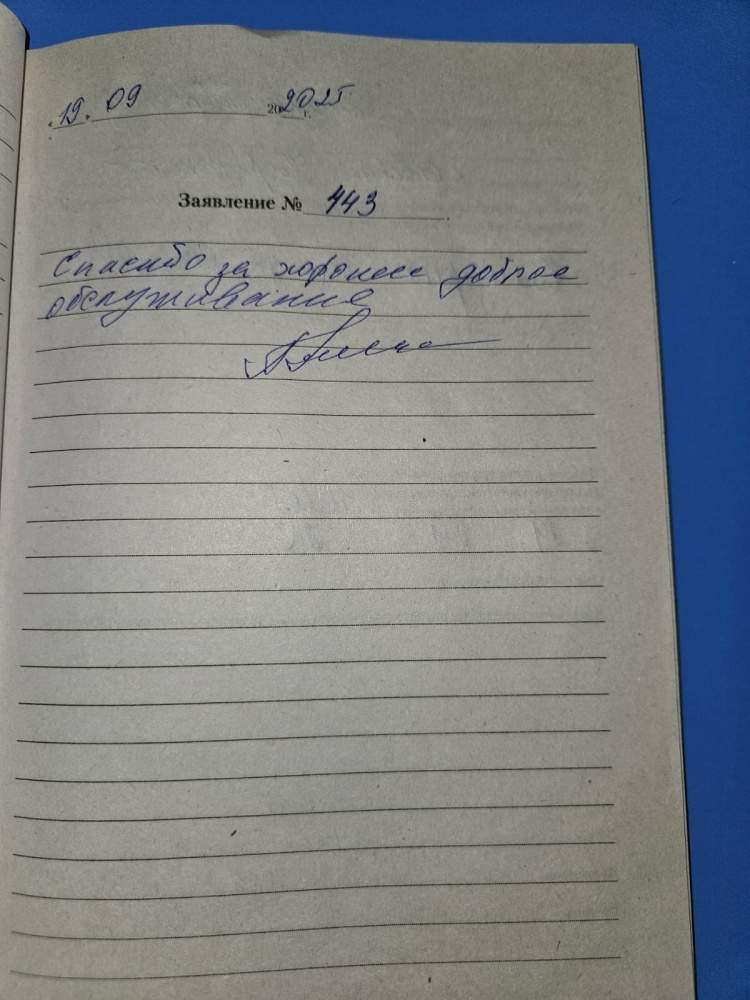 19. 09 202025 г.
Заявление № 443
Спасибо за хорошее доброе
обслуживание